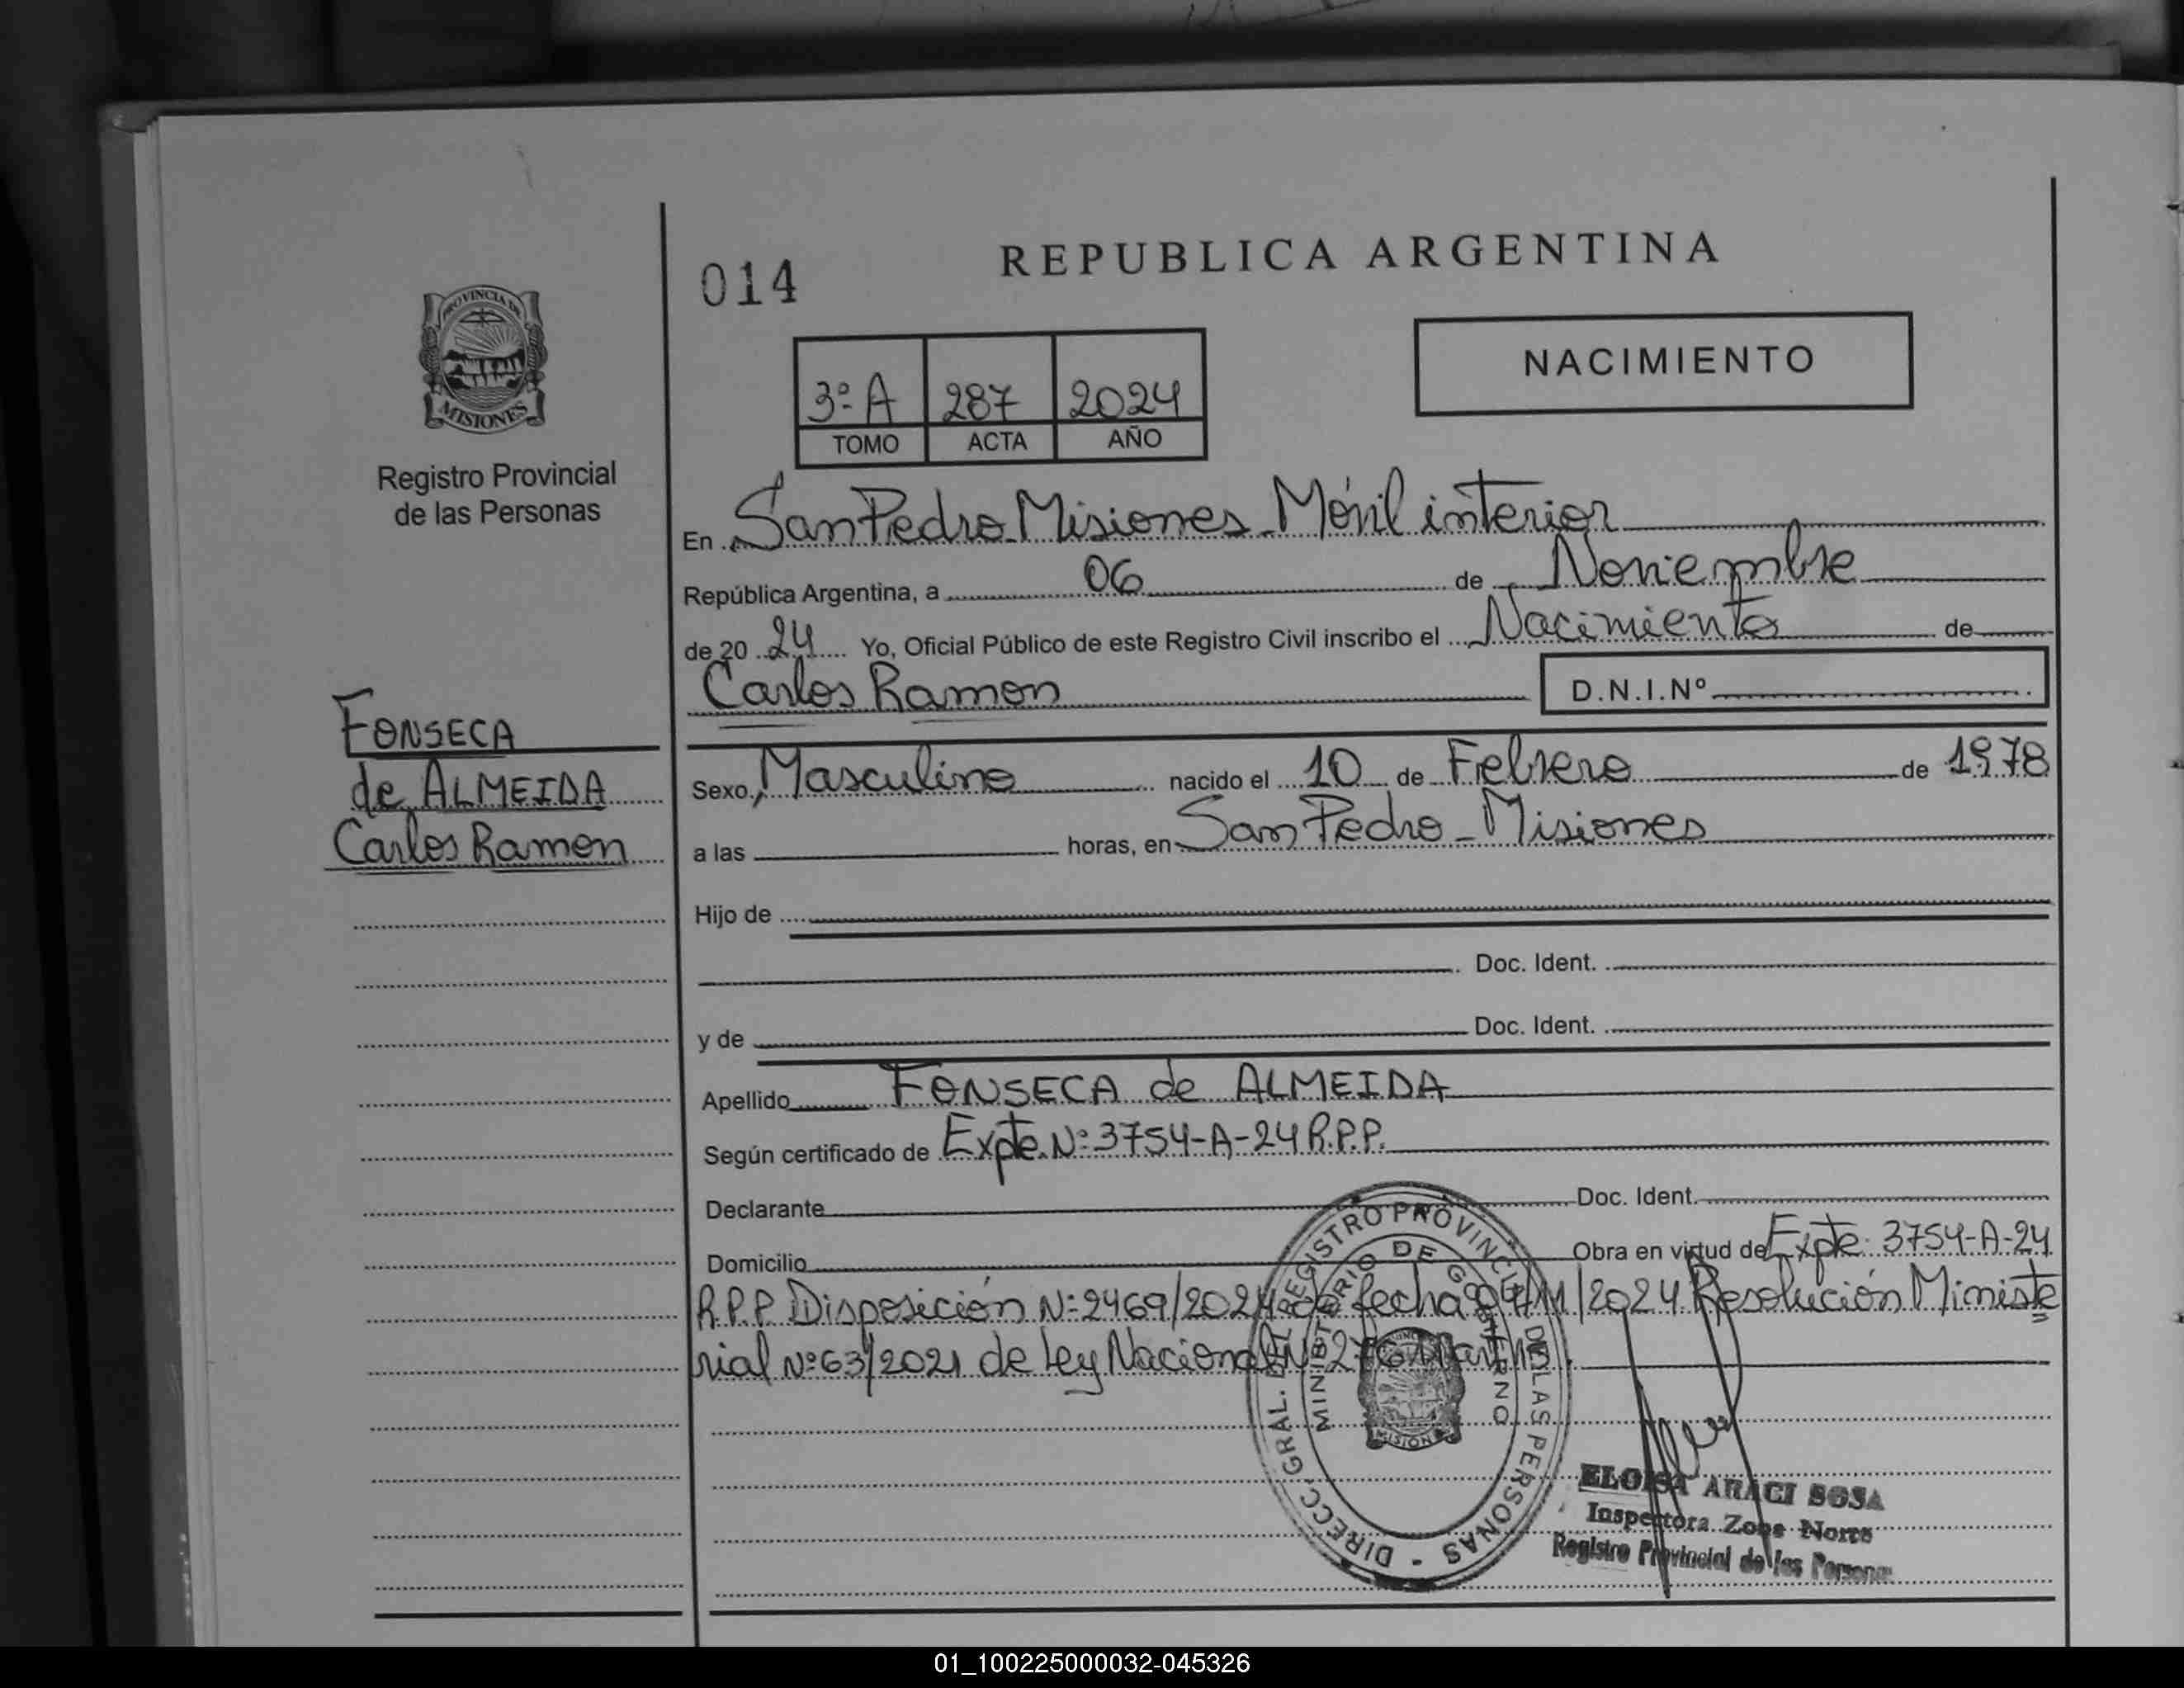 REPUBLICA ARGENTINA
014
NACIMIENTO
3º A 287 2024
TOMO ACTA AÑO
PROVINCIA DE
MISIONES
Registro Provincial
de las Personas
En San Pedro Misiones Móvil interior
República Argentina, a 06 de Noviembre
de 20 24 Yo, Oficial Público de este Registro Civil inscribo el Nacimiento de
Carlos Ramon D.N.I.Nº
FONSECA
de ALMEIDA
Carlos Ramon
Sexo, Masculino nacido el 10 de Febrero de 1978
a las horas, en San Pedro - Misiones
Hijo de
Doc. Ident.
y de Doc. Ident.
Apellido FONSECA de ALMEIDA
Según certificado de Expte. Nº 3754-A-24 R.P.P.
Declarante Doc. Ident.
Domicilio Obra en virtud de Expte. 3754-A-24
R.P.P. Disposición Nº 2469/2024 de fecha /11/2024 Resolución Ministe
rial Nº 63/2021 de Ley Nacional Nº
DIRECC. GRAL. DEL REGISTRO PROVINCIAL DE LAS PERSONAS -
MINISTERIO DE GOBIERNO
MISIONES
ELOISA ARACI SOSA
Inspectora Zona Norte
Registro Provincial de las Personas
01_100225000032-045326